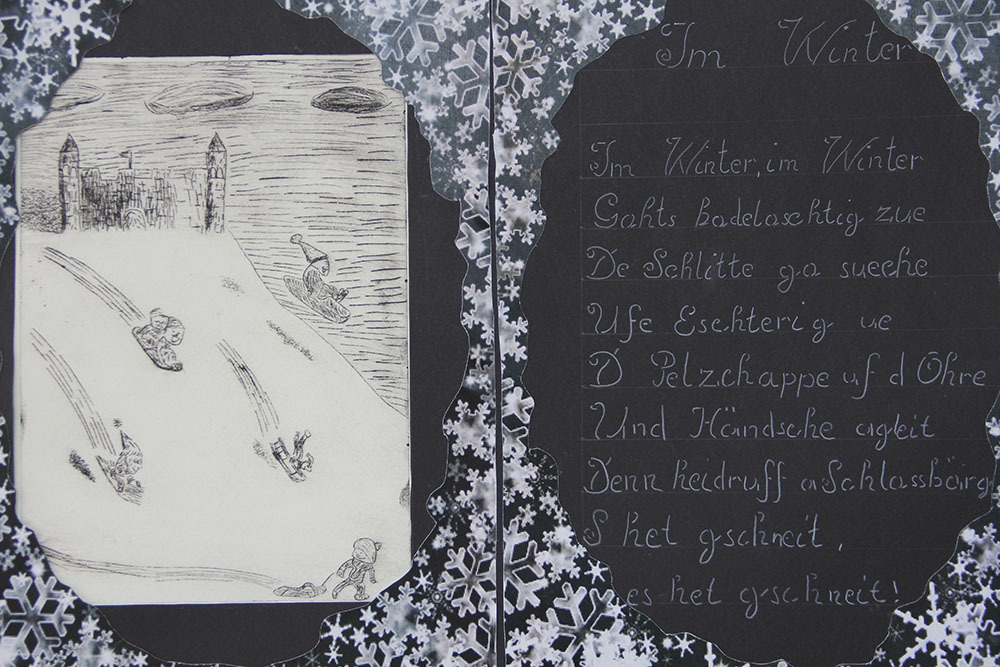 Im Winter
Im Winter, im Winter
Gahts badelaschtig zue
De Schlitte ga sueche
Ufe Eschterig ue
D Pelzchappe uf d Ohre
Und Händsche agleit
Denn heidruff a Schlassbärg
S het gschneit,
es het gschneit!